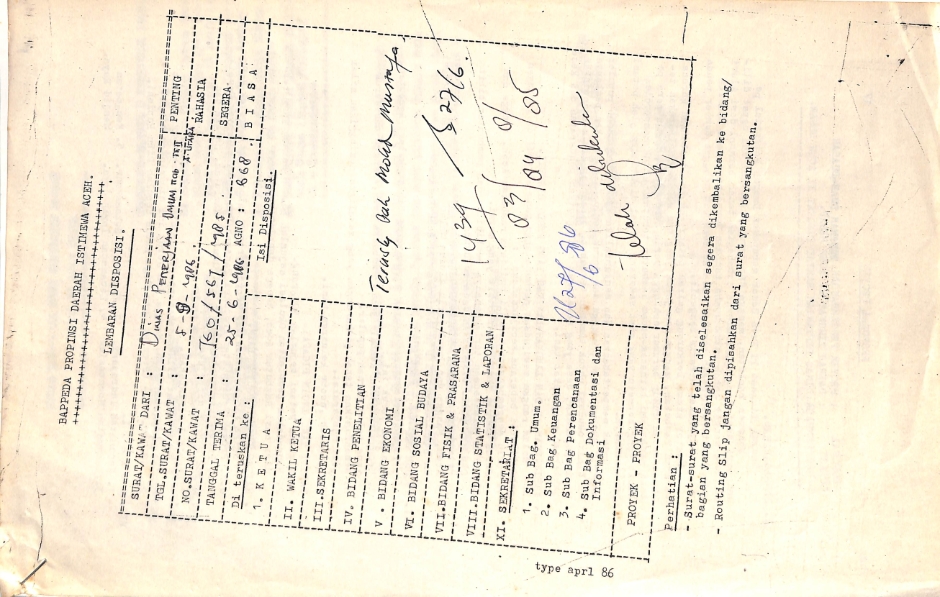 BAPPEDA PROPINSI DAERAH ISTIMEWA ACEH.
LEMBARAN DISPOSISI.
SURAT/KAWAT DARI : Dinas Pekerjaan Umum PENTING
TGL.SURAT/KAWAT : 1986 RAHASIA
NO.SURAT/KAWAT : 760/567/1985 SEGERA
TANGGAL TERIMA : 25-6-1986 AGNO : 668. B I A S A
Di teruskan ke : Isi Disposisi.
1. K E T U A
II. WAKIL KETUA
III.SEKRETARIS
IV. BIDANG PENELITIAN
V . BIDANG EKONOMI
VI. BIDANG SOSIAL BUDAYA
VII.BIDANG FISIK & PRASARANA
VIII.BIDANG STATISTIK & LAPORAN
XI. SEKRETARIAT :
1. Sub Bag. Umum.
2. Sub Bag Keuangan
3. Sub Bag Perencanaan
4. Sub Bag Dokumentasi dan
Informasi
PROYEK - PROYEK
27/6
1439
27/6 86
Telah dibukukan
Perhatian :
- Surat-surat yang telah diselesaikan segera dikembalikan ke bidang/
bagian yang bersangkutan.
- Routing Slip jangan dipisahkan dari surat yang bersangkutan.
type aprl 86